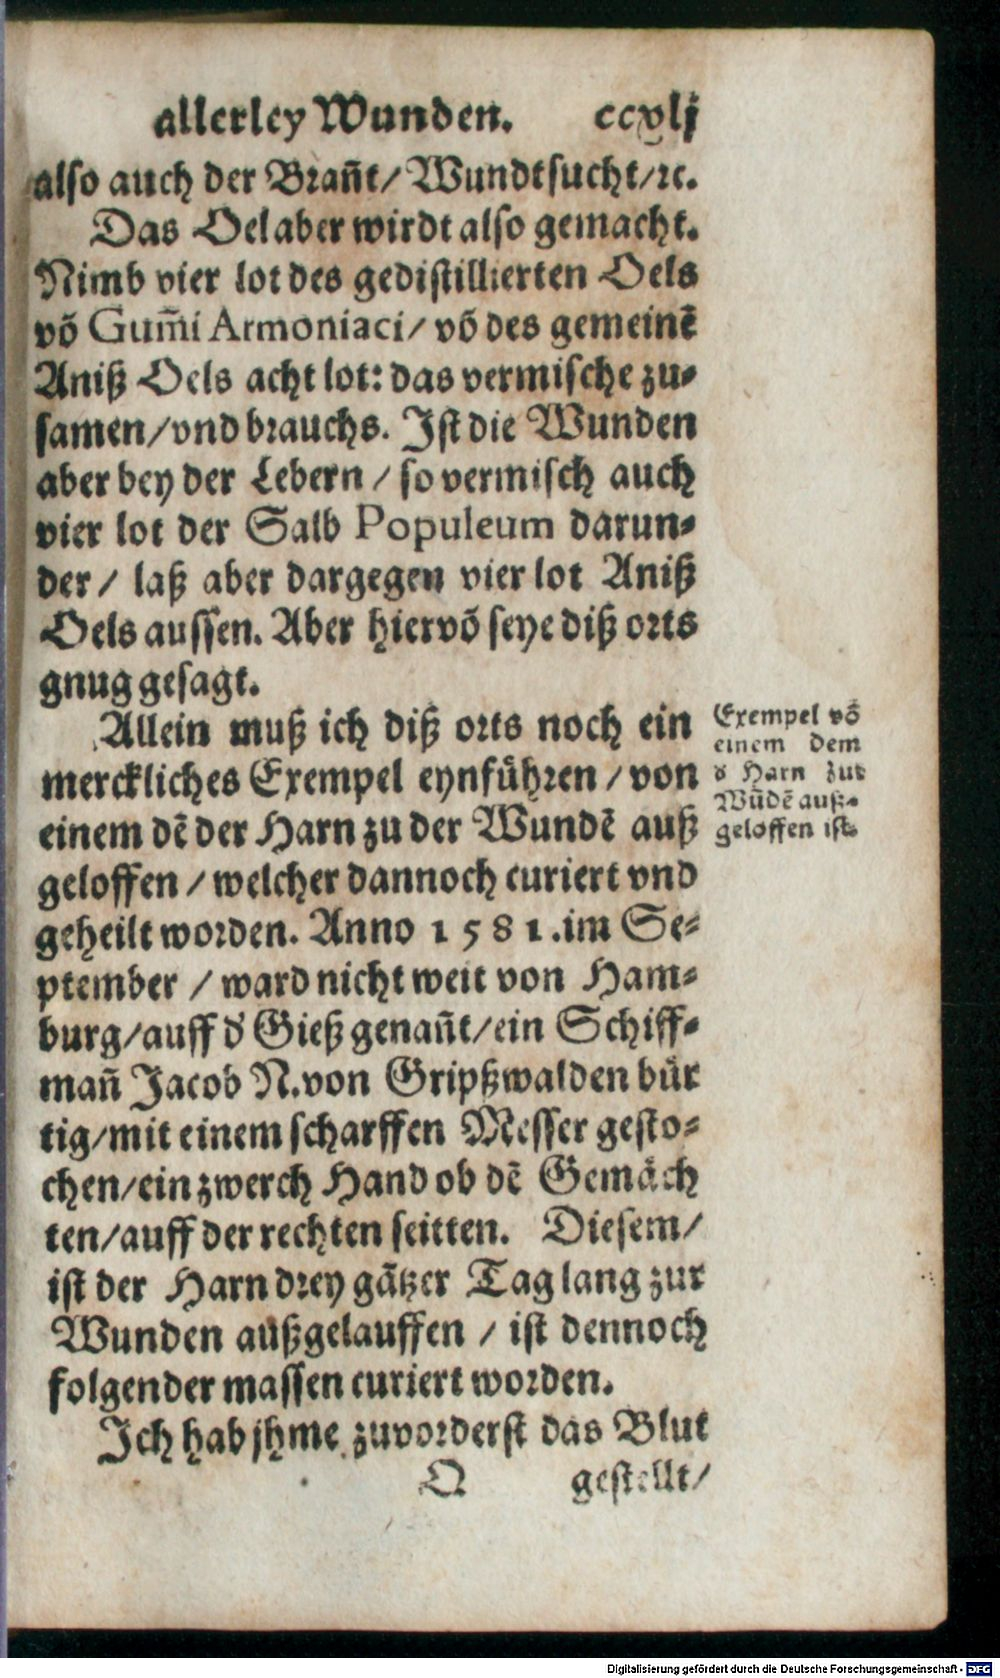 allerley Wunden. ccxlj
also auch der Brañt/ Wundtsucht/ ꝛc.
Das Oel aber wirdt also gemacht.
Nimb vier lot des gedistillierten Oels
võ Gum̃i Armoniaci/ võ des gemeinẽ
Aniß Oels acht lot: das vermische zu-
samen/ vnd brauchs. Ist die Wunden
aber bey der Lebern / so vermisch auch
vier lot der Salb Populeum darun-
der/ laß aber dargegen vier lot Aniß
Oels aussen. Aber hiervõ seye diß orts
gnug gesagt.
Allein muß ich diß orts noch ein
merckliches Exempel eynführen / von
einem dẽ der Harn zu der Wundẽ auß
geloffen / welcher dannoch curiert vnd
geheilt worden. Anno 1581. im Se-
ptember / ward nicht weit von Ham-
burg/ auff d' Gieß genañt/ ein Schiff-
mañ Jacob N. von Gripßwalden bür
tig/ mit einem scharffen Messer gesto-
chen/ ein zwerch Hand ob dẽ Gemäch
ten/ auff der rechten seitten. Diesem/
ist der Harn drey gãtzer Tag lang zur
Wunden außgelauffen / ist dennoch
folgender massen curiert worden.
Ich hab jhme zuvorderst das Blut
Q gestellt/
Exempel võ
einem dem
d' Harn zur
Wũdẽ auß-
geloffen ist.
Digitalisierung gefördert durch die Deutsche Forschungsgemeinschaft - DFG